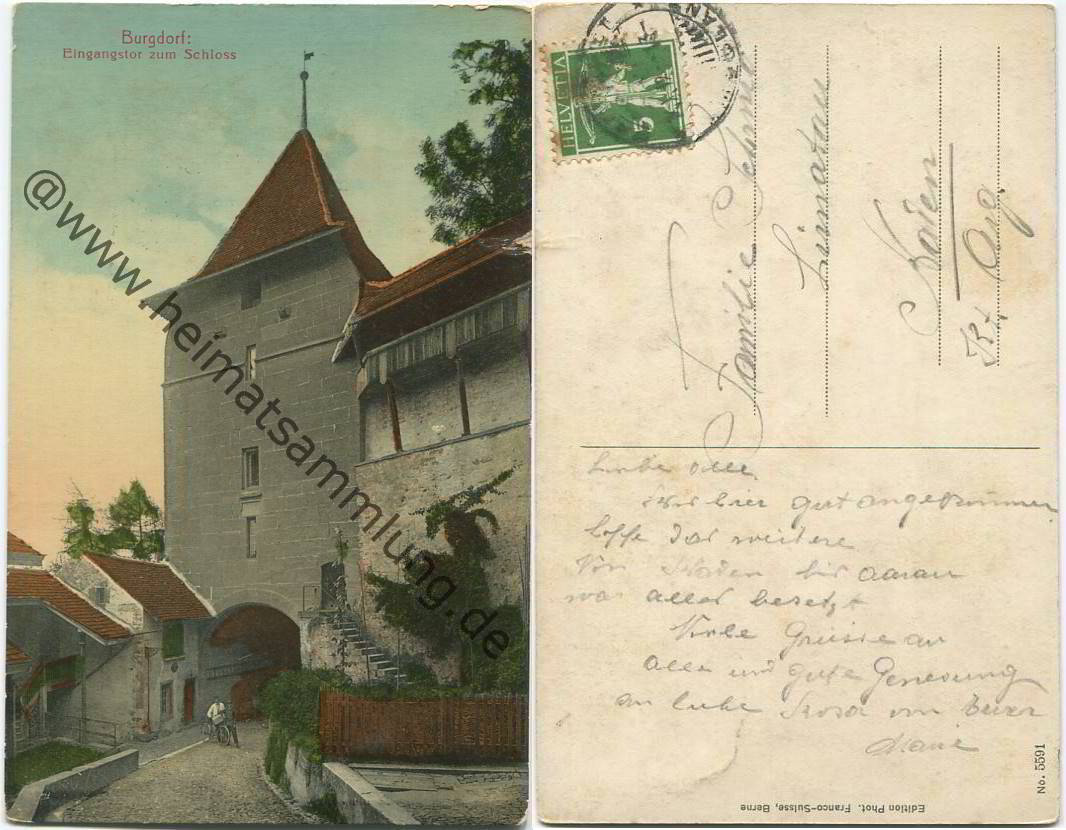 Burgdorf:
Eingangstor zum Schloss
@www.heimatsammlung.de
HELVETIA
5
Familie
Limatau
Baden
Kt. Aug.
Liebe
hier gut angekommen
hoffe das weitere
Von Baden bis Aarau
war alles besetzt
Viele Grüsse an
alle und gute Genesung
an liebe Rosa von Eurer
Edition Phot. Franco-Suisse, Berne
No. 5591